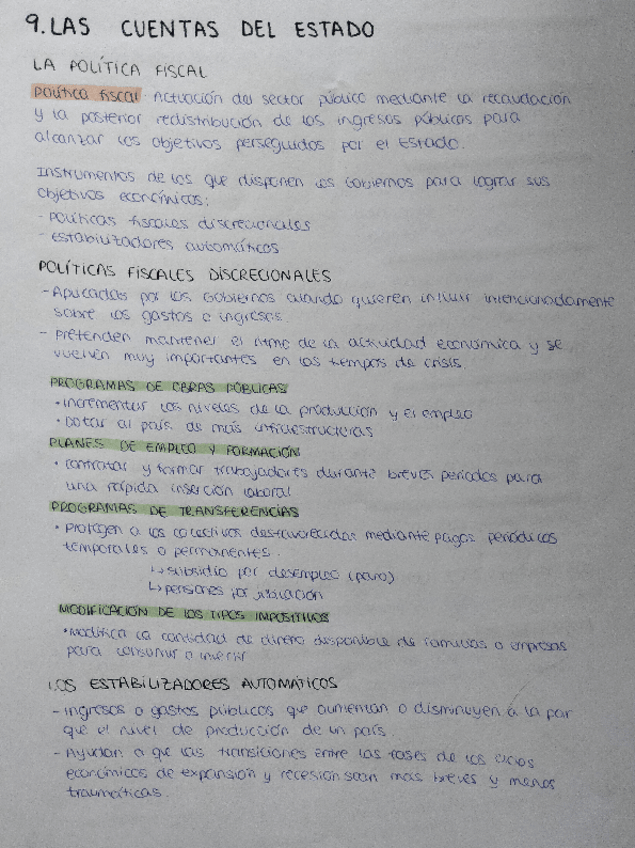 9. LAS CUENTAS DEL ESTADO
LA POLÍTICA FISCAL
Política fiscal: Actuación del sector público mediante la recaudación
y la posterior redistribución de los ingresos públicos para
alcanzar los objetivos perseguidos por el Estado.
Instrumentos de los que disponen los Gobiernos para lograr sus
objetivos económicos:
- Políticas fiscales discrecionales
- Estabilizadores automáticos
POLÍTICAS FISCALES DISCRECIONALES
- Aplicadas por los Gobiernos cuando quieren influir intencionadamente
sobre los gastos e ingresos.
- Pretenden mantener el ritmo de la actividad económica y se
vuelven muy importantes en los tiempos de crisis.
PROGRAMAS DE OBRAS PÚBLICAS
• Incrementar los niveles de la producción y el empleo
• Dotar al país de más infraestructuras
PLANES DE EMPLEO Y FORMACIÓN
• Contratar y formar trabajadores durante breves periodos para
una rápida inserción laboral
PROGRAMAS DE TRANSFERENCIAS
• Protegen a los colectivos desfavorecidos mediante pagos periódicos
temporales o permanentes.
↳ subsidio por desempleo (paro)
↳ pensiones por jubilación
MODIFICACIÓN DE LOS TIPOS IMPOSITIVOS
• Modifica la cantidad de dinero disponible de familias o empresas
para consumir o invertir
LOS ESTABILIZADORES AUTOMÁTICOS
- Ingresos o gastos públicos que aumentan o disminuyen a la par
que el nivel de producción de un país.
- Ayudan a que las transiciones entre las fases de los ciclos
económicos de expansión y recesión sean más breves y menos
traumáticas.